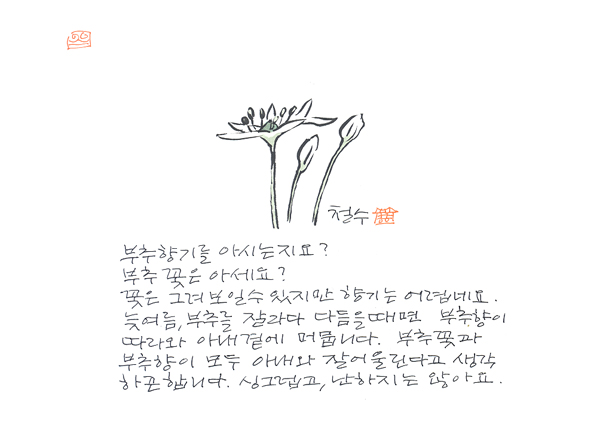 철수
부추향기를 아시는지요?
부추 꽃은 아세요?
꽃은 그려보일수 있지만 향기는 어렵네요.
늦여름, 부추를 잘라다 다듬을때면 부추향이
따라와 아내곁에 머뭅니다. 부추꽃과
부추향이 모두 아내와 잘어울린다고 생각
하곤합니다. 싱그럽고, 난하지는 않아요.